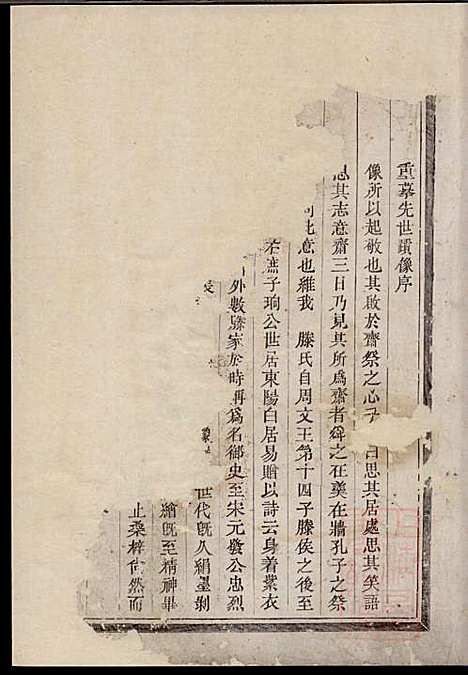 重摹先世遺像序
像所以起敬也其敢於齋祭之心乎曰思其居處思其笑語
思其志意齋三日乃見其所為齋者舜之在羹在牆孔子之祭
此意也維我 滕氏自周文王第十四子滕侯之後至
庶子珦公世居東陽白居易贈以詩云身着紫衣
外數滕家於時再為名御史至宋元發公忠烈
世代既久絹墨剝
繪既至精神畢
止桑梓尚然而